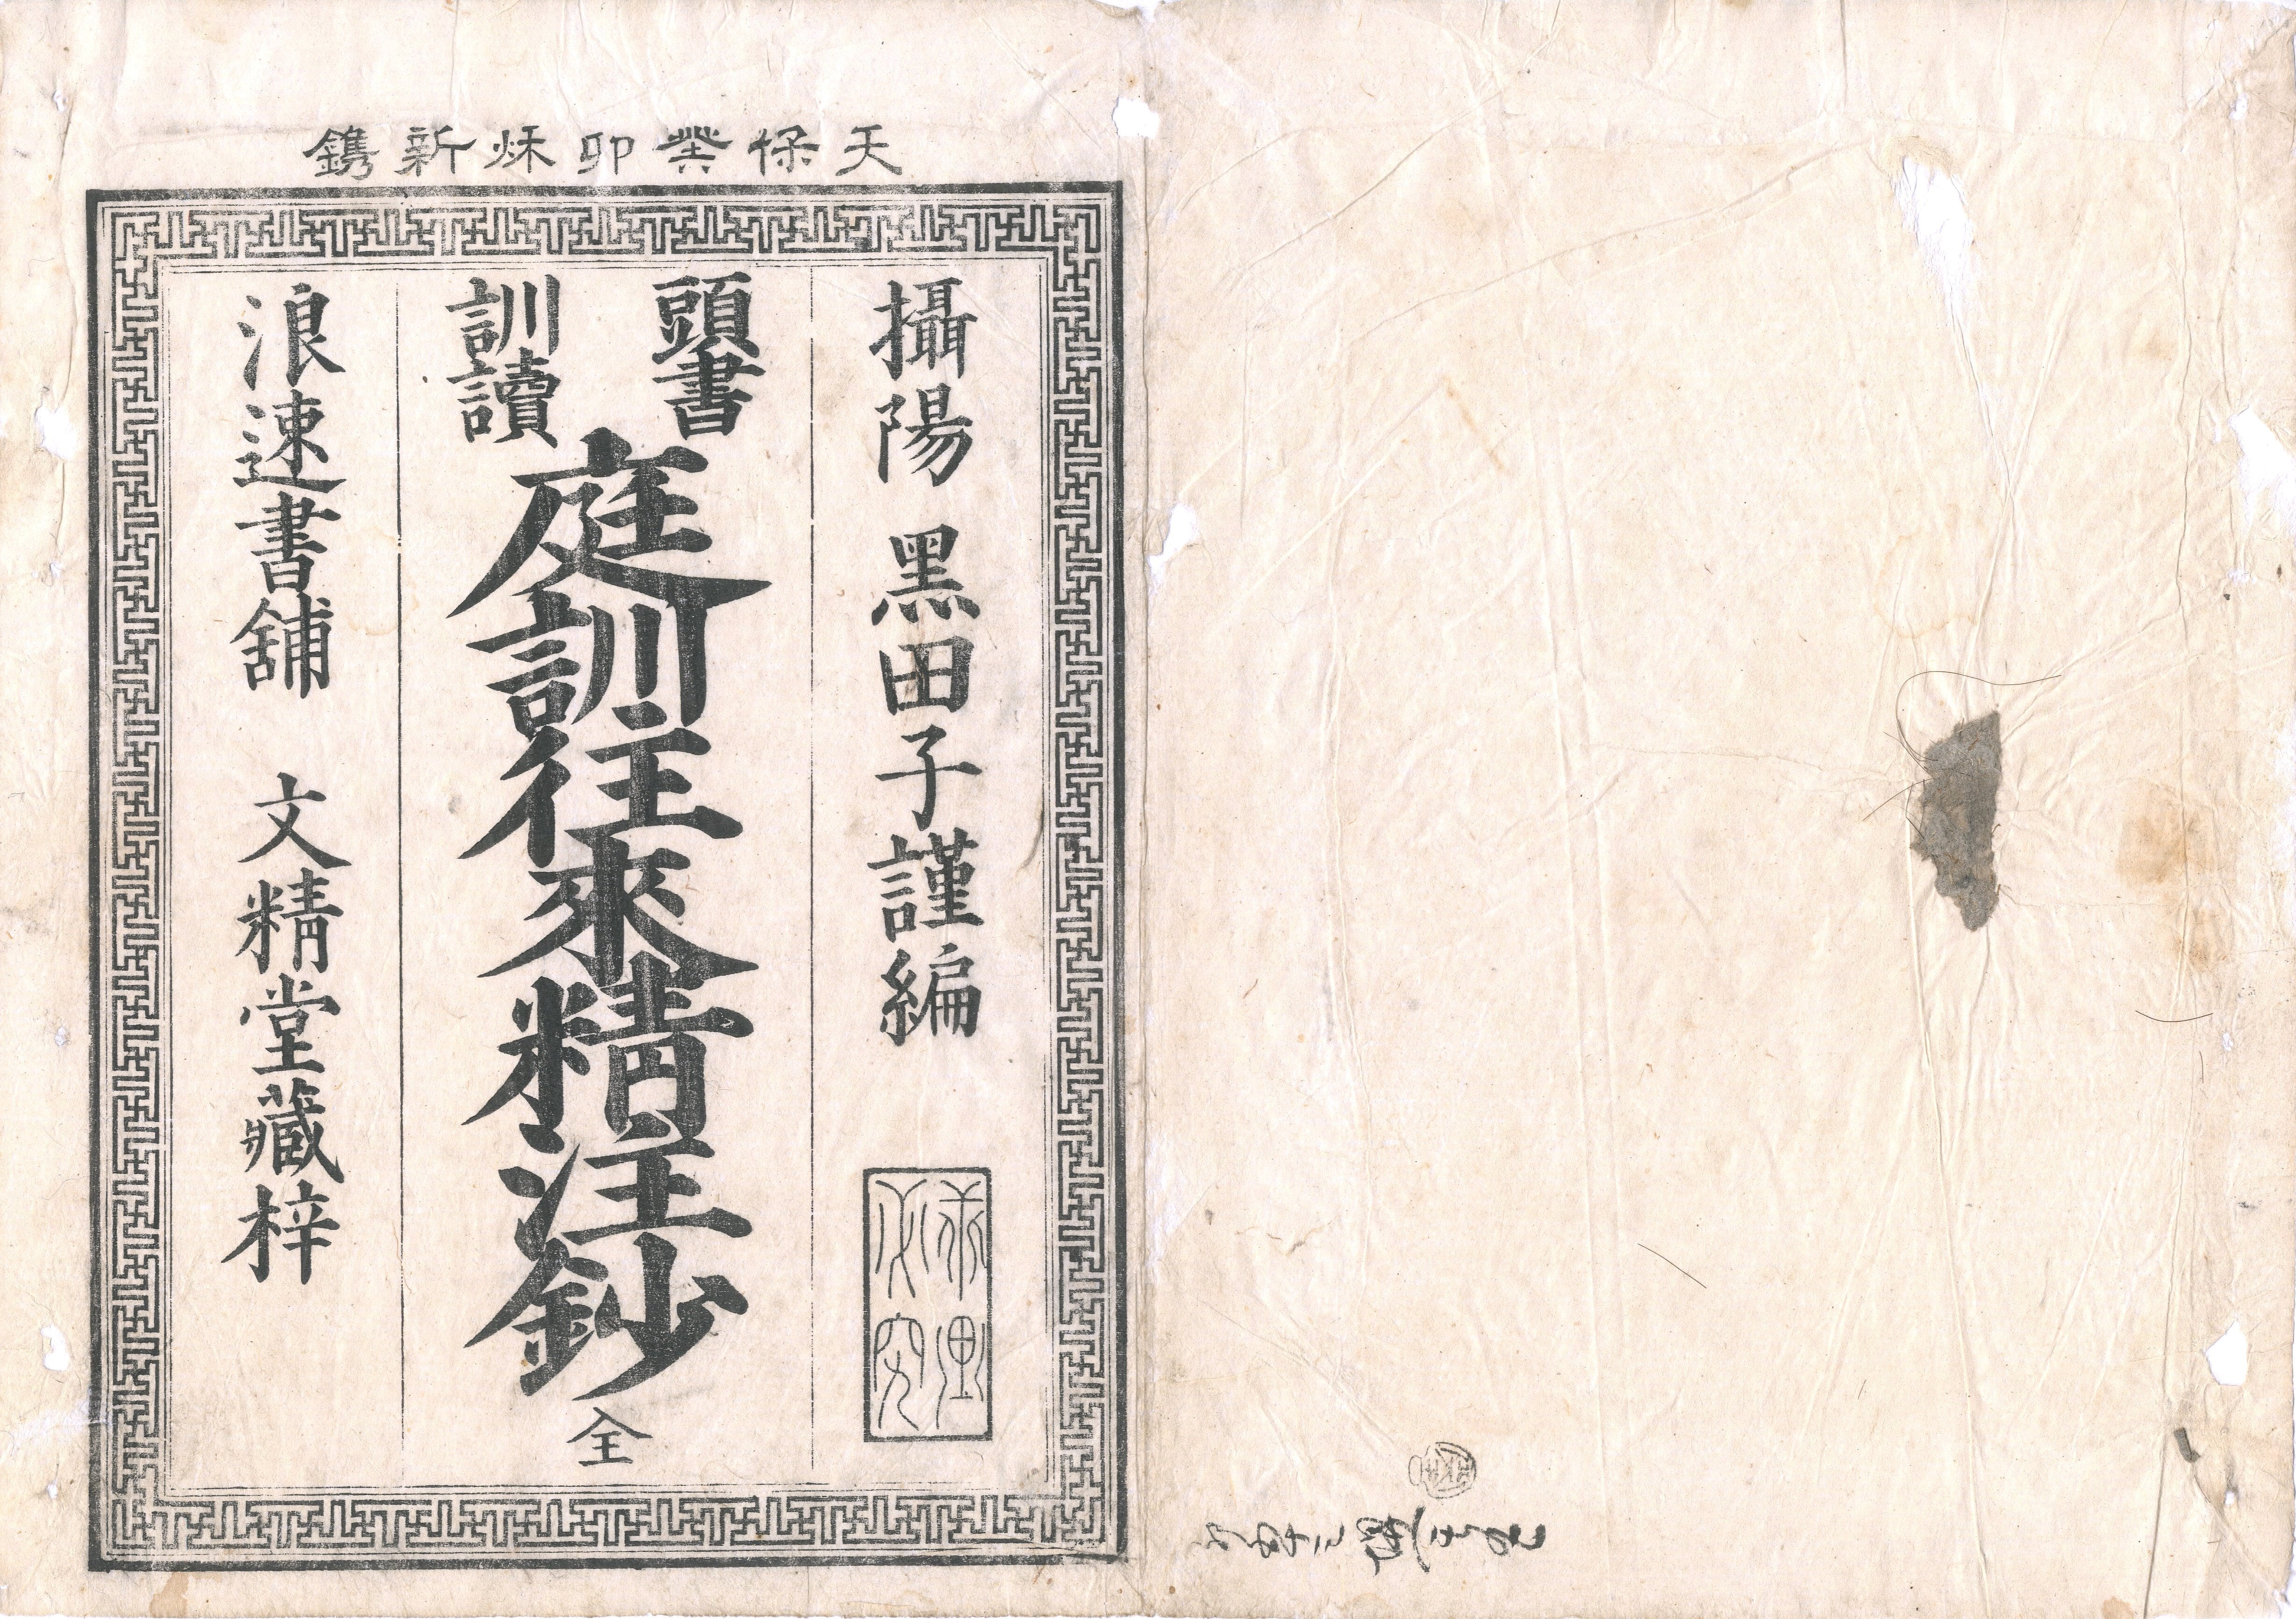 天保癸卯秌新鐫
攝陽 黑田子謹編
頭書
訓讀
庭訓往來精注鈔 全
浪速書舖 文精堂藏梓